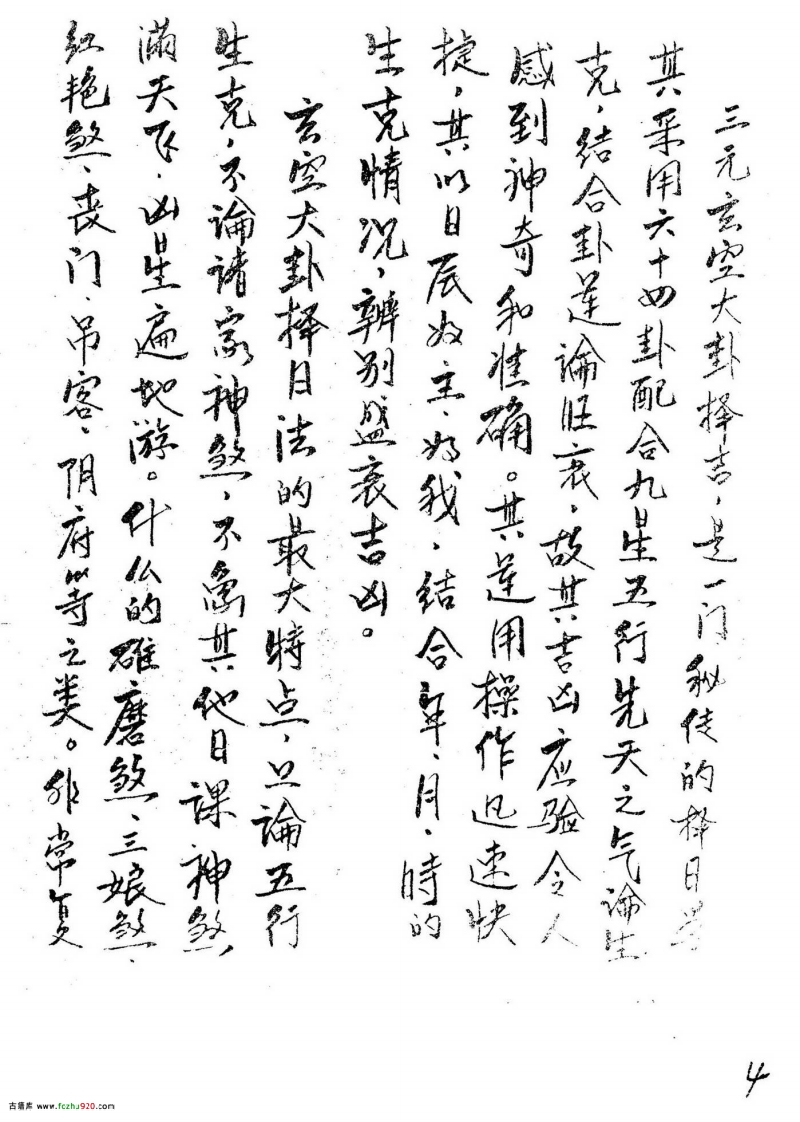 三元玄空大卦择吉，是一门秘传的择日学
其采用六十四卦配合九星五行先天之气論生
克，结合卦運論旺衰，故其吉凶应验令人
感到神奇和准确。其運用操作迅速快
捷，其以日辰如主、如我，结合年、月、時的
生克情况，辨别盛衰吉凶。
玄空大卦择日法的最大特点，只論五行
生克，不論諸家神煞，不离其他日課神煞，
滿天飞，凶星遍地游。什么的碓磨煞、三娘煞、
红艳煞、丧门、吊客、阴府等之类。非常复
4
古籍库 www.fczhu920.com